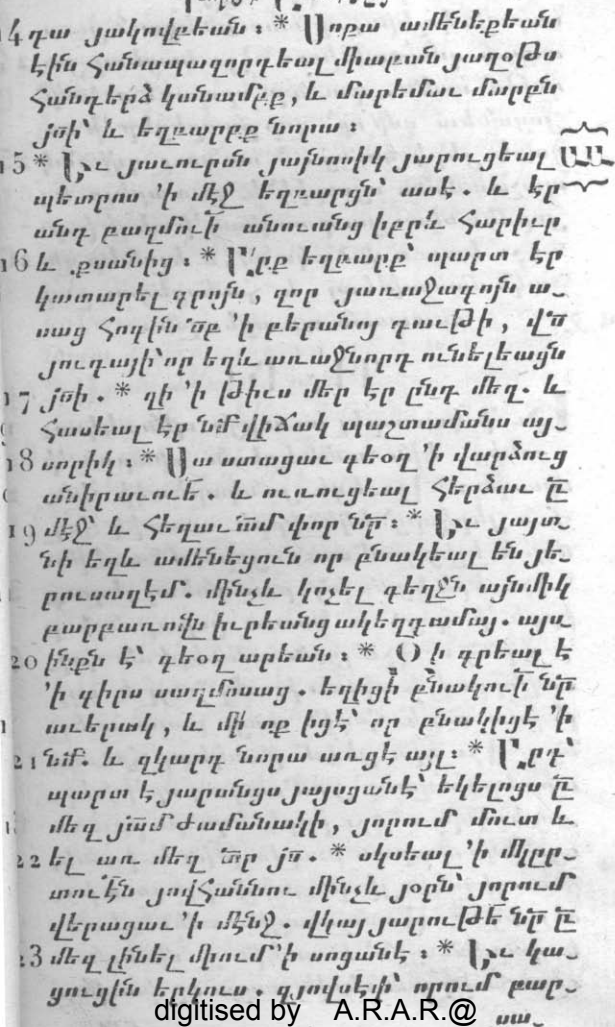 14 դա յակովբեան։ * Սոքա ամենեքեան
էին հանապազորդեալ միաբան յաղօթս
հանդերձ կանամբք, և մարեմաւ մարբն
յսի՝ և եղբարբք նորա։
15 * Եւ յաւուրսն յայնոսիկ յարուցեալ ԱԱ
պետրոս ՚ի մէջ եղբարցն՝ ասէ. և էր
անդ բազմուի անուանց իբրև հարիւր
16 և քսանից։ * Արք եղբարք՝ պարտ էր
կատարել գրոյն, զոր յառաջագոյն ա-
սաց հոգին սք ՚ի բերանոյ դաւթի, վս
յուդայի՝ որ եղև առաջնորդ ունելեացն
17 յսի. * զի ՚ի թիւս մեր էր ընդ մեզ. և
հասեալ էր նմ վիճակ պաշտամանս այ-
18 սորիկ։ * Սա ստացաւ գեօղ ՚ի վարձուց
անիրաւուե. և ուռուցեալ հերձաւ ը
19 մէջ՝ և հեղաւ ամ փոր նր։ * Եւ յայտ-
նի եղև ամենեցուն որ բնակեալ են յե-
րուսաղէմ. մինչև կոչել գեղջն այնմիկ
բարբառովն իւրեանց ակեղդամայ. այս-
20 ինքն է՝ գեօղ արեան։ * Օի գրեալ է
՚ի գիրս սաղմոսաց. եղիցի բնակուի նր
աւերակ, և մի ոք իցէ՝ որ բնակիցէ ՚ի
21 նմ. և զկարդ նորա առցէ այլ։ * Արդ՝
պարտ է յարանցս յայսցանէ՝ եկելոցս ը
մեզ յամ ժամանակի, յորում մուտ և
22 ել առ մեզ տր յս. * սկսեալ ՚ի մկրը-
տուէն յովհաննու մինչև յօրն՝ յորում
վերացաւ ՚ի մէնջ. վկայ յարութե նր ը
23 մեզ լինել միում ՚ի սոցանէ։ * Եւ կա-
ցուցին երկուս. զյովսէփ՝ որում բար-
սա-
digitised by A.R.A.R.@